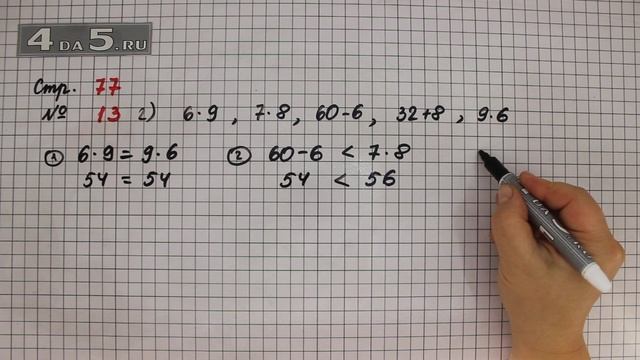 4 DA 5.RU
Стр. 77
№ 13 2) 6·9, 7·8, 60-6, 32+8, 9·6
① 6·9 = 9·6 ② 60-6 < 7·8
54 = 54 54 < 56